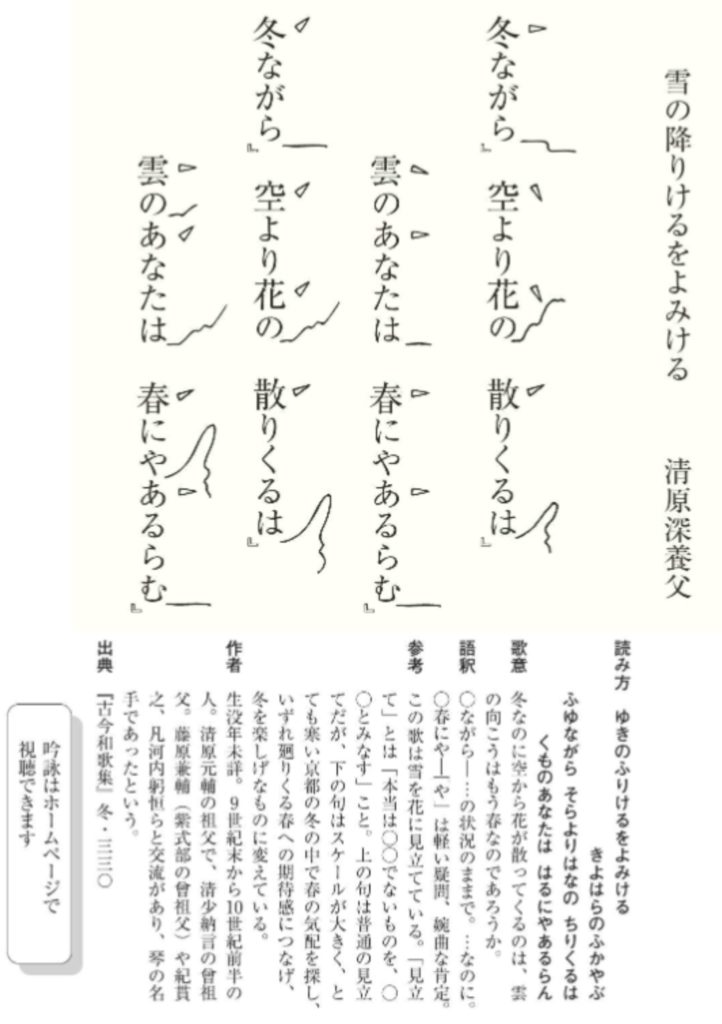 雪の降りけるをよみける　清原深養父
冬ながら』　空より花の　散りくるは』
雲のあなたは　春にやあるらむ』
冬ながら』　空より花の　散りくるは』
雲のあなたは　春にやあるらむ』
読み方　ゆきのふりけるをよみける
きよはらのふかやぶ
ふゆながら　そらよりはなの　ちりくるは
くものあなたは　はるにやあるらん
歌意　冬なのに空から花が散ってくるのは、雲
の向こうはもう春なのであろうか。
語釈　〇ながら―…の状況のままで。…なのに。
〇春にや―「や」は軽い疑問、婉曲な肯定。
参考　この歌は雪を花に見立てている。「見立
て」とは「本当は〇〇でないものを、〇
〇とみなす」こと。上の句は普通の見立
てだが、下の句はスケールが大きく、と
ても寒い京都の冬の中で春の気配を探し、
いずれ廻りくる春への期待感につなげ、
冬を楽しげなものに変えている。
作者　生没年未詳。9世紀末から10世紀前半の
人。清原元輔の祖父で、清少納言の曾祖
父。藤原兼輔（紫式部の曾祖父）や紀貫
之、凡河内躬恒らと交流があり、琴の名
手であったという。
出典　『古今和歌集』冬・三三〇
吟詠はホームページで
視聴できます